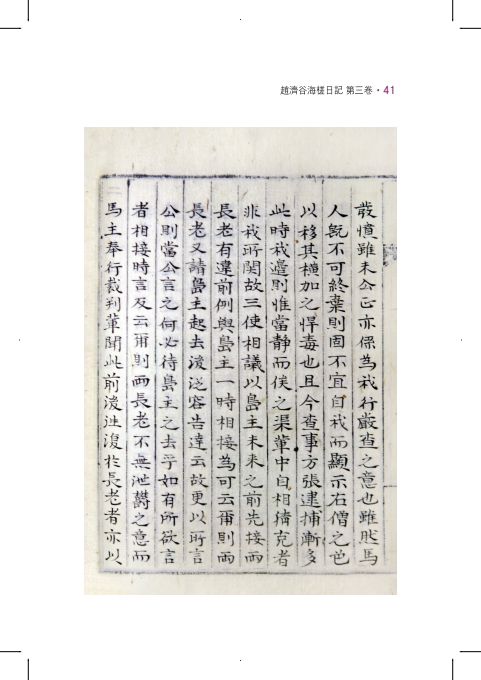 趙濟谷海槎日記 第三卷 • 41
憤雖未公正亦係爲我行嚴查之意也雖然馬
人旣不可終棄則固不宜自我而顯示右僧之色
以移其橫加之悍毒也且今查事方張逮捕漸多
此時我邊則惟當靜而俟之渠輩中自相猜克者
非我所關故三使相議以島主未來之前先接兩
長老有違前例與島主一時相接爲可云爾則兩
長老又請島主起去後從容告達云故更以所言
公則當公言之何必待島主之去乎如有所欲言
者相接時言及云爾則兩長老不無泄欝之意而
馬主奉行裁判輩聞此前後往復於長老者亦以